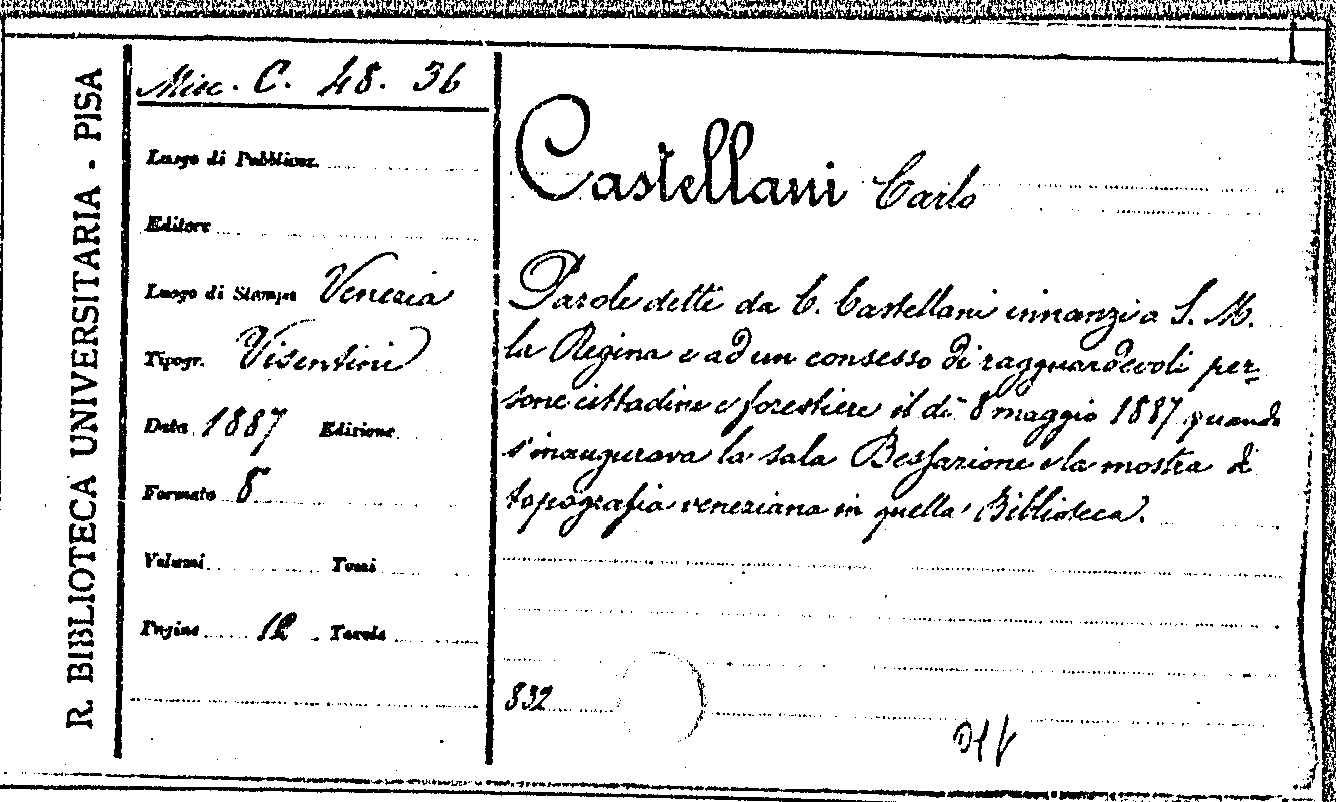 R. BIBLIOTECA UNIVERSITARIA - PISA
Misc. C. 48. 36
Luogo di Pubblicaz.
Editore
Luogo di Stampa Venezia
Tipogr. Visentini
Data 1887 Edizione
Formato 8
Volumi Tomi
Pagine 12 Tavole
Castellani Carlo
Parole dette da C. Castellani innanzi a S. M.
la Regina e ad un consesso di ragguardevoli per-
sone cittadine e forestiere il dì 8 maggio 1887 quando
s'inaugurava la sala Bessarione e la mostra di
topografia veneziana in quella Biblioteca.
832